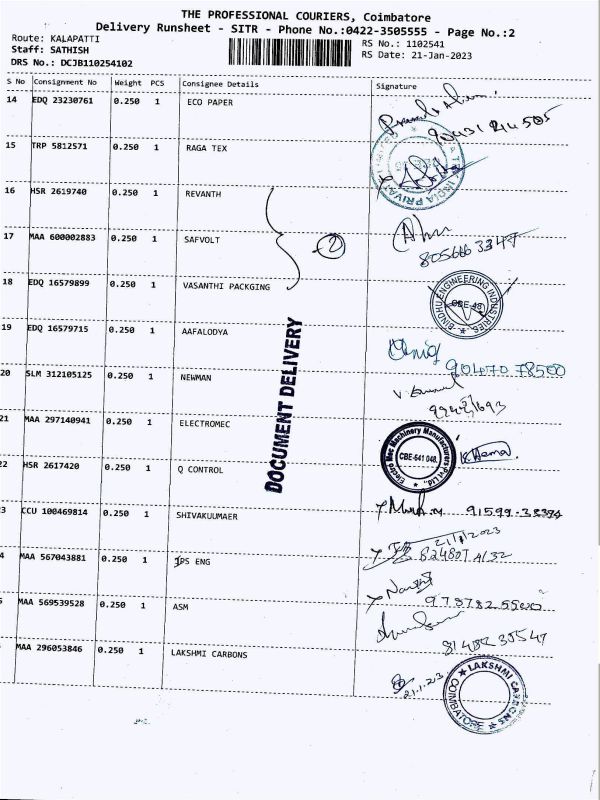 THE PROFESSIONAL COURIERS, Coimbatore
Delivery Runsheet - SITR - Phone No.:0422-3505555 - Page No.:2
Route: KALAPATTI
Staff: SATHISH
DRS No.: DCJB110254102
RS No.: 1102541
RS Date: 21-Jan-2023
S No Consignment No Weight PCS Consignee Details Signature
14 EDQ 23230761 0.250 1 ECO PAPER
15 TRP 5812571 0.250 1 RAGA TEX
16 HSR 2619740 0.250 1 REVANTH
17 MAA 600002883 0.250 1 SAFVOLT
2
8056663347
18 EDQ 16579899 0.250 1 VASANTHI PACKGING
BINDHU ENGINEERING INDUSTRIES
CBE-48
19 EDQ 16579715 0.250 1 AAFALODYA
90470 78500
20 SLM 312105125 0.250 1 NEWMAN
DOCUMENT DELIVERY
21 MAA 297140941 0.250 1 ELECTROMEC
Electro Mec Machinery Manufacturers Pvt Ltd.
CBE-641 048.
K. Hema
22 HSR 2617420 0.250 1 Q CONTROL
3 CCU 100469814 0.250 1 SHIVAKUUMAER
21/1/2023
4 MAA 567043881 0.250 1 IPS ENG
MAA 569539528 0.250 1 ASM
MAA 296053846 0.250 1 LAKSHMI CARBONS
21.1.23
LAKSHMI CARBONS
COIMBATORE